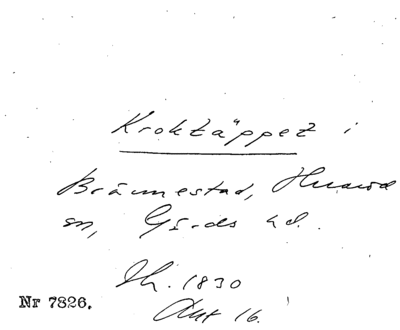 Kroktäppet i
Brännestad, Huaröd
sn, Gärds hd.
Sh. 1830
Akt 16.
Nr 7826.